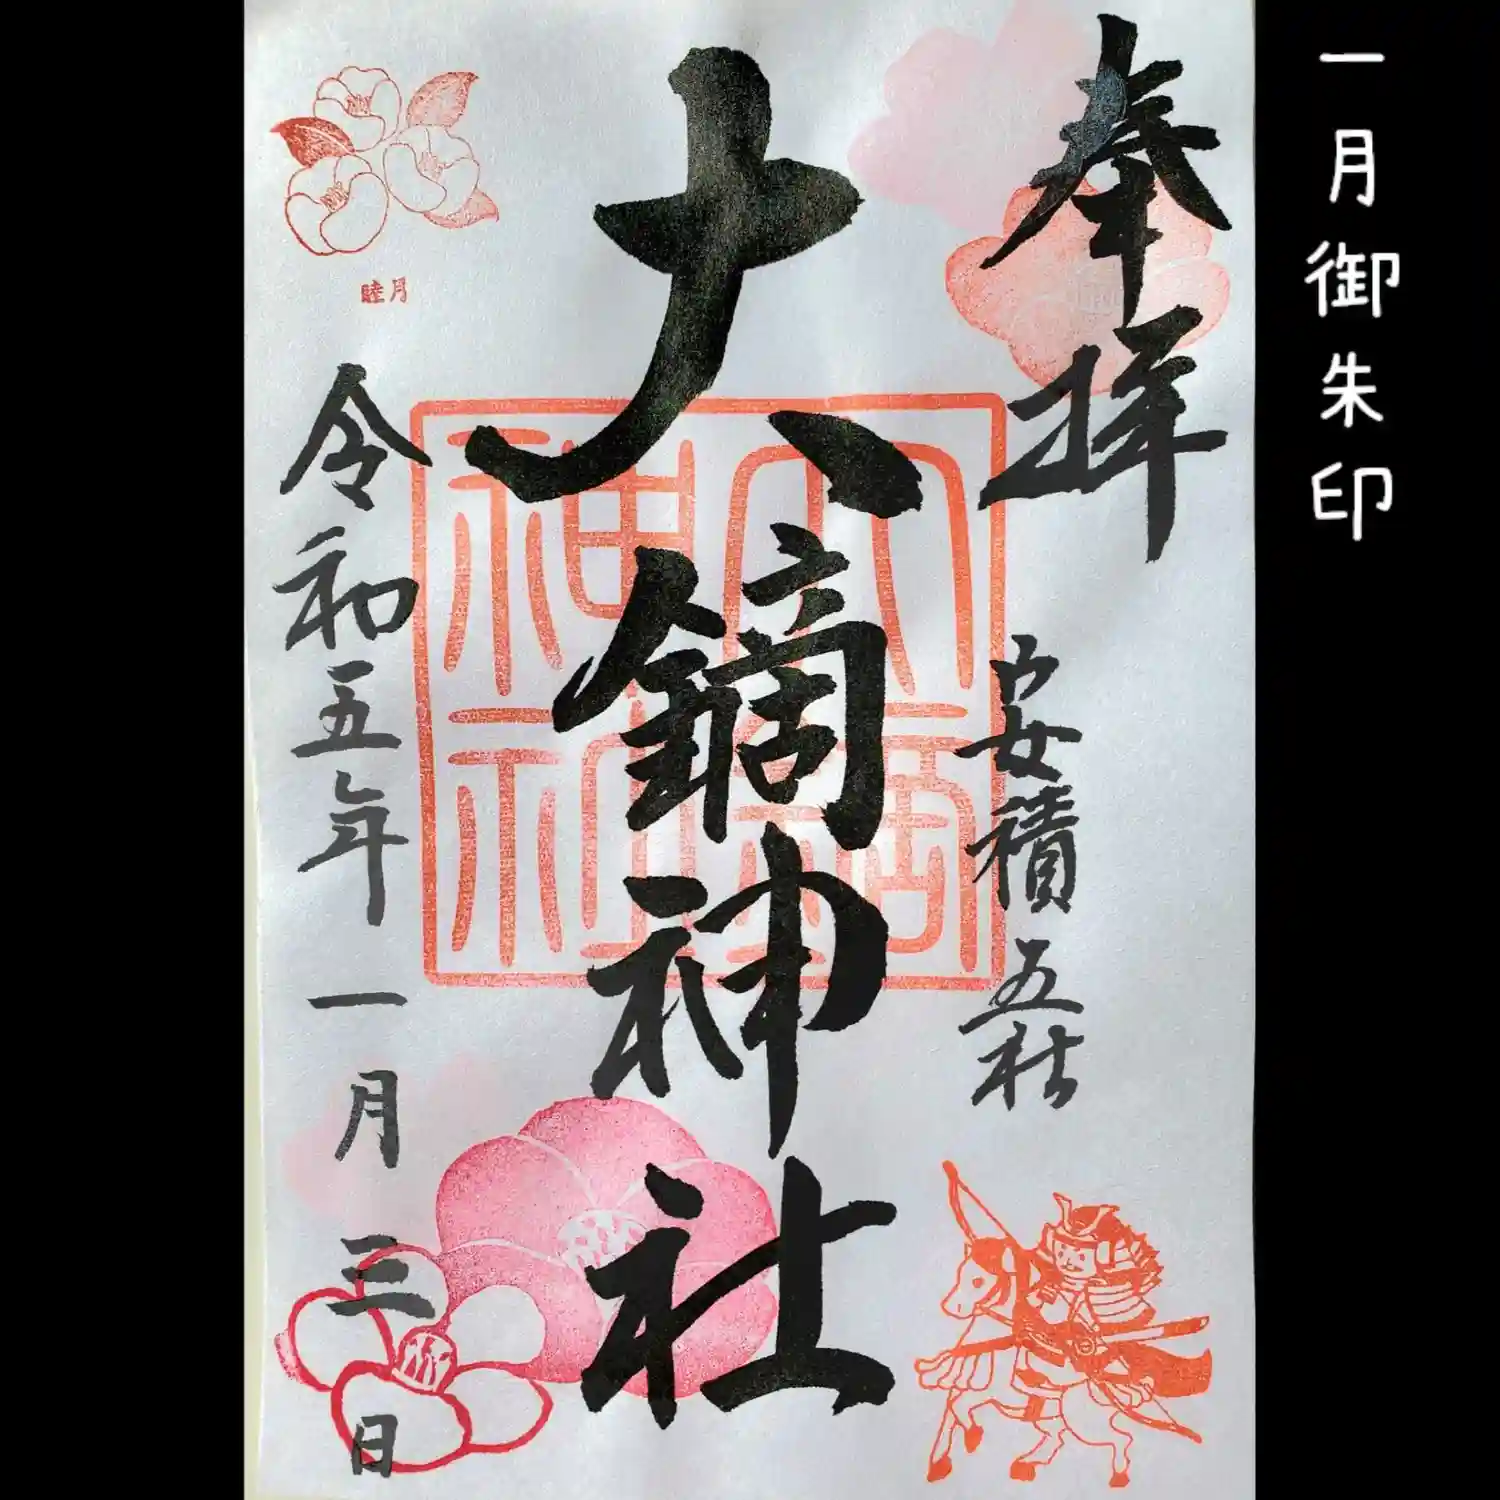 一月御朱印
奉拝
安積五社
大鏑神社
大鏑神社
睦月
令和五年一月三日